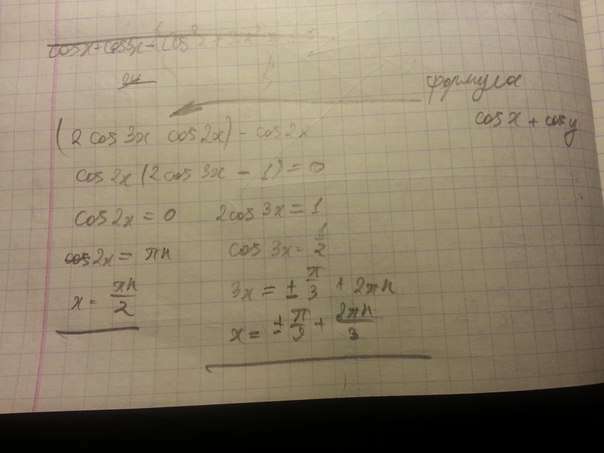 cosx + cos5x -
формула
cosx + cosy
(2 cos3x cos2x) - cos2x
cos2x (2cos3x - 1) = 0
cos2x = 0 2cos3x = 1
cos2x = πn cos3x = 1/2
x = πn/2 3x = ± π/3 + 2πn
x = ± π/9 + 2πn/3